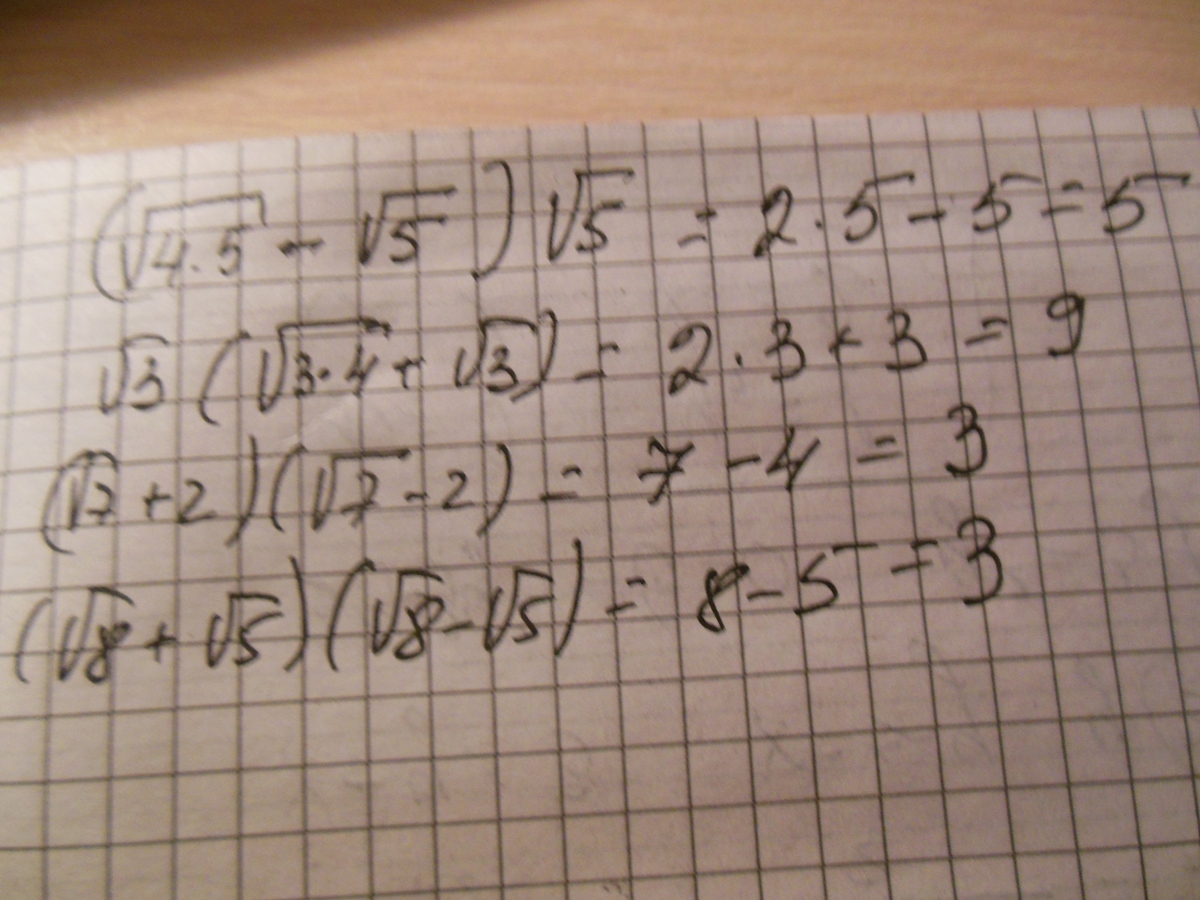 (√4·5 − √5)√5 = 2·5 − 5 = 5
√3(√3·4 + √3) = 2·3 + 3 = 9
(√7 + 2)(√7 − 2) = 7 − 4 = 3
(√8 + √5)(√8 − √5) = 8 − 5 = 3